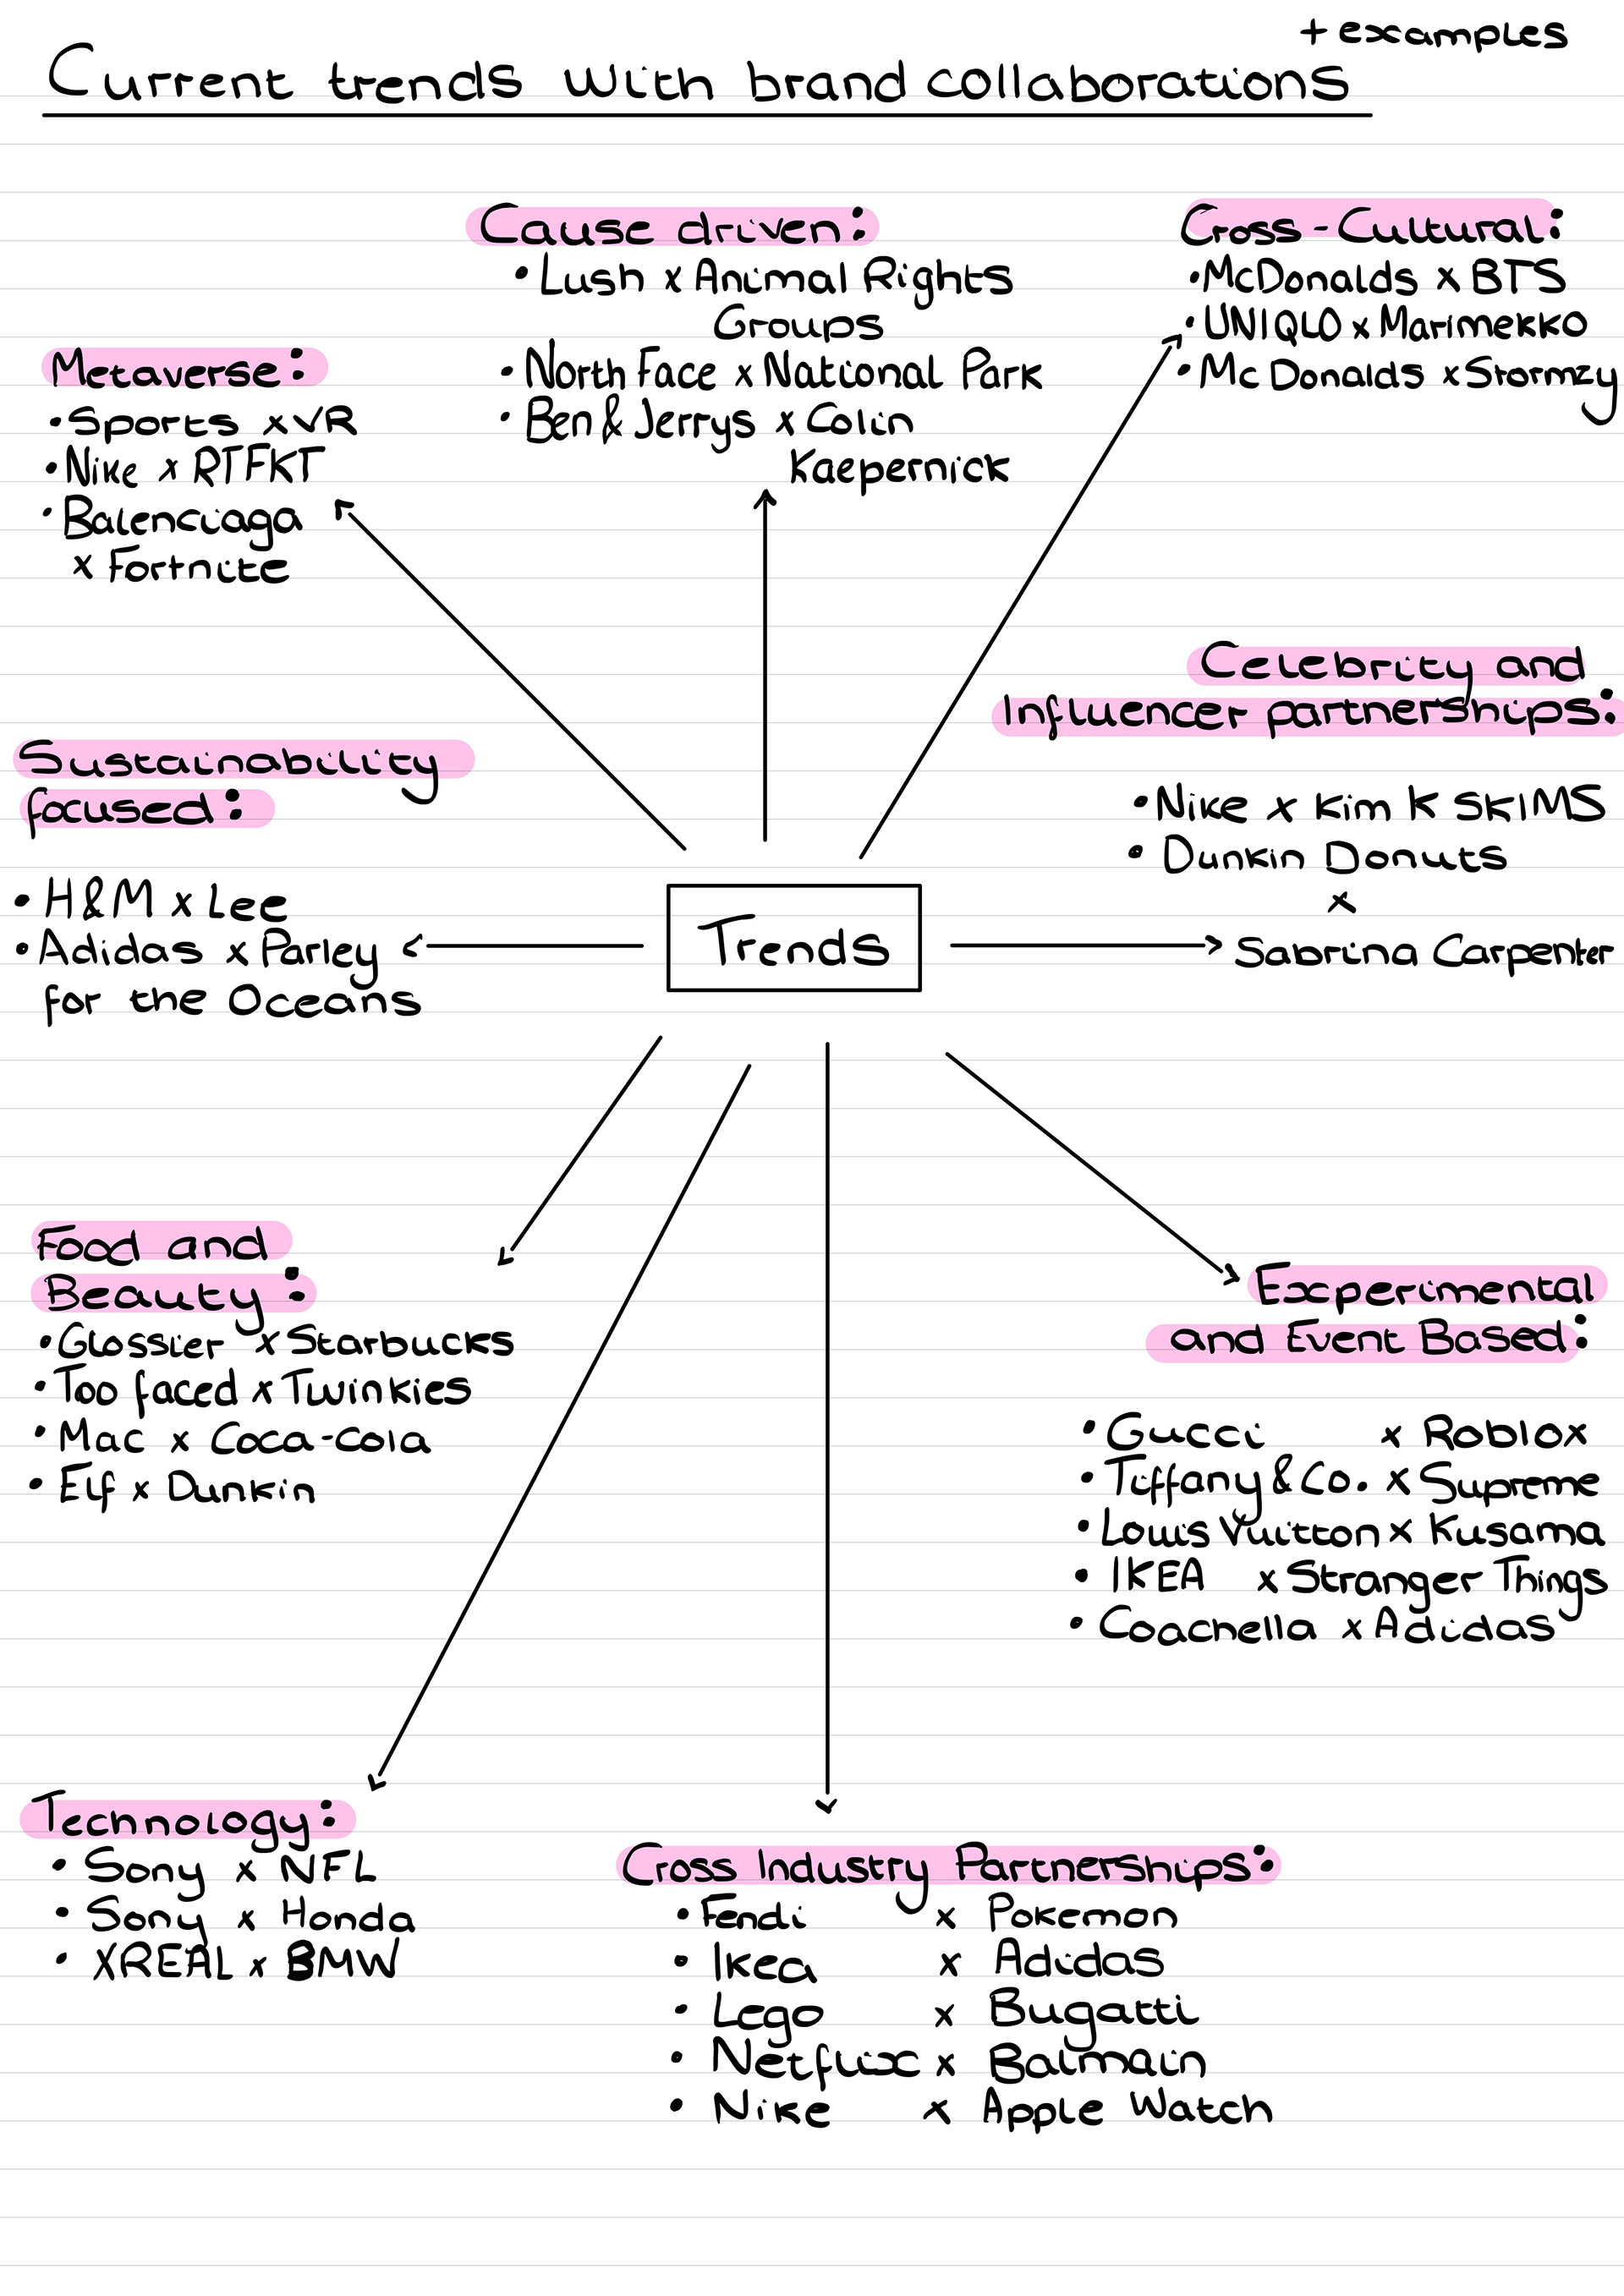 + examples
Current trends with brand collaborations
Cause driven:
• Lush x Animal Rights
Groups
• North Face x National Park
• Ben & Jerrys x Colin
Kaepernick
Cross-Cultural:
• McDonalds x BTS
• UNIQLO x Marimekko
• Mc Donalds x Stormzy
Metaverse:
• Sports x VR
• Nike x RTFKT
• Balenciaga
x Fortnite
Celebrity and
Influencer partnerships:
• Nike x Kim K SKIMS
• Dunkin Donuts
x
Sabrina Carpenter
Sustainability
focused:
• H&M x Lee
• Adidas x Parley
for the Oceans
Trends
Food and
Beauty:
• Glossier x Starbucks
• Too faced x Twinkies
• Mac x Coca-Cola
• Elf x Dunkin
Experimental
and Event Based:
• Gucci x Roblox
• Tiffany & Co. x Supreme
• Louis Vuitton x Kusama
• IKEA x Stranger Things
• Coachella x Adidas
Technology:
• Sony x NFL
• Sony x Honda
• XREAL x BMW
Cross Industry Partnerships:
• Fendi x Pokemon
• Ikea x Adidas
• Lego x Bugatti
• Netflix x Balmain
• Nike x Apple Watch